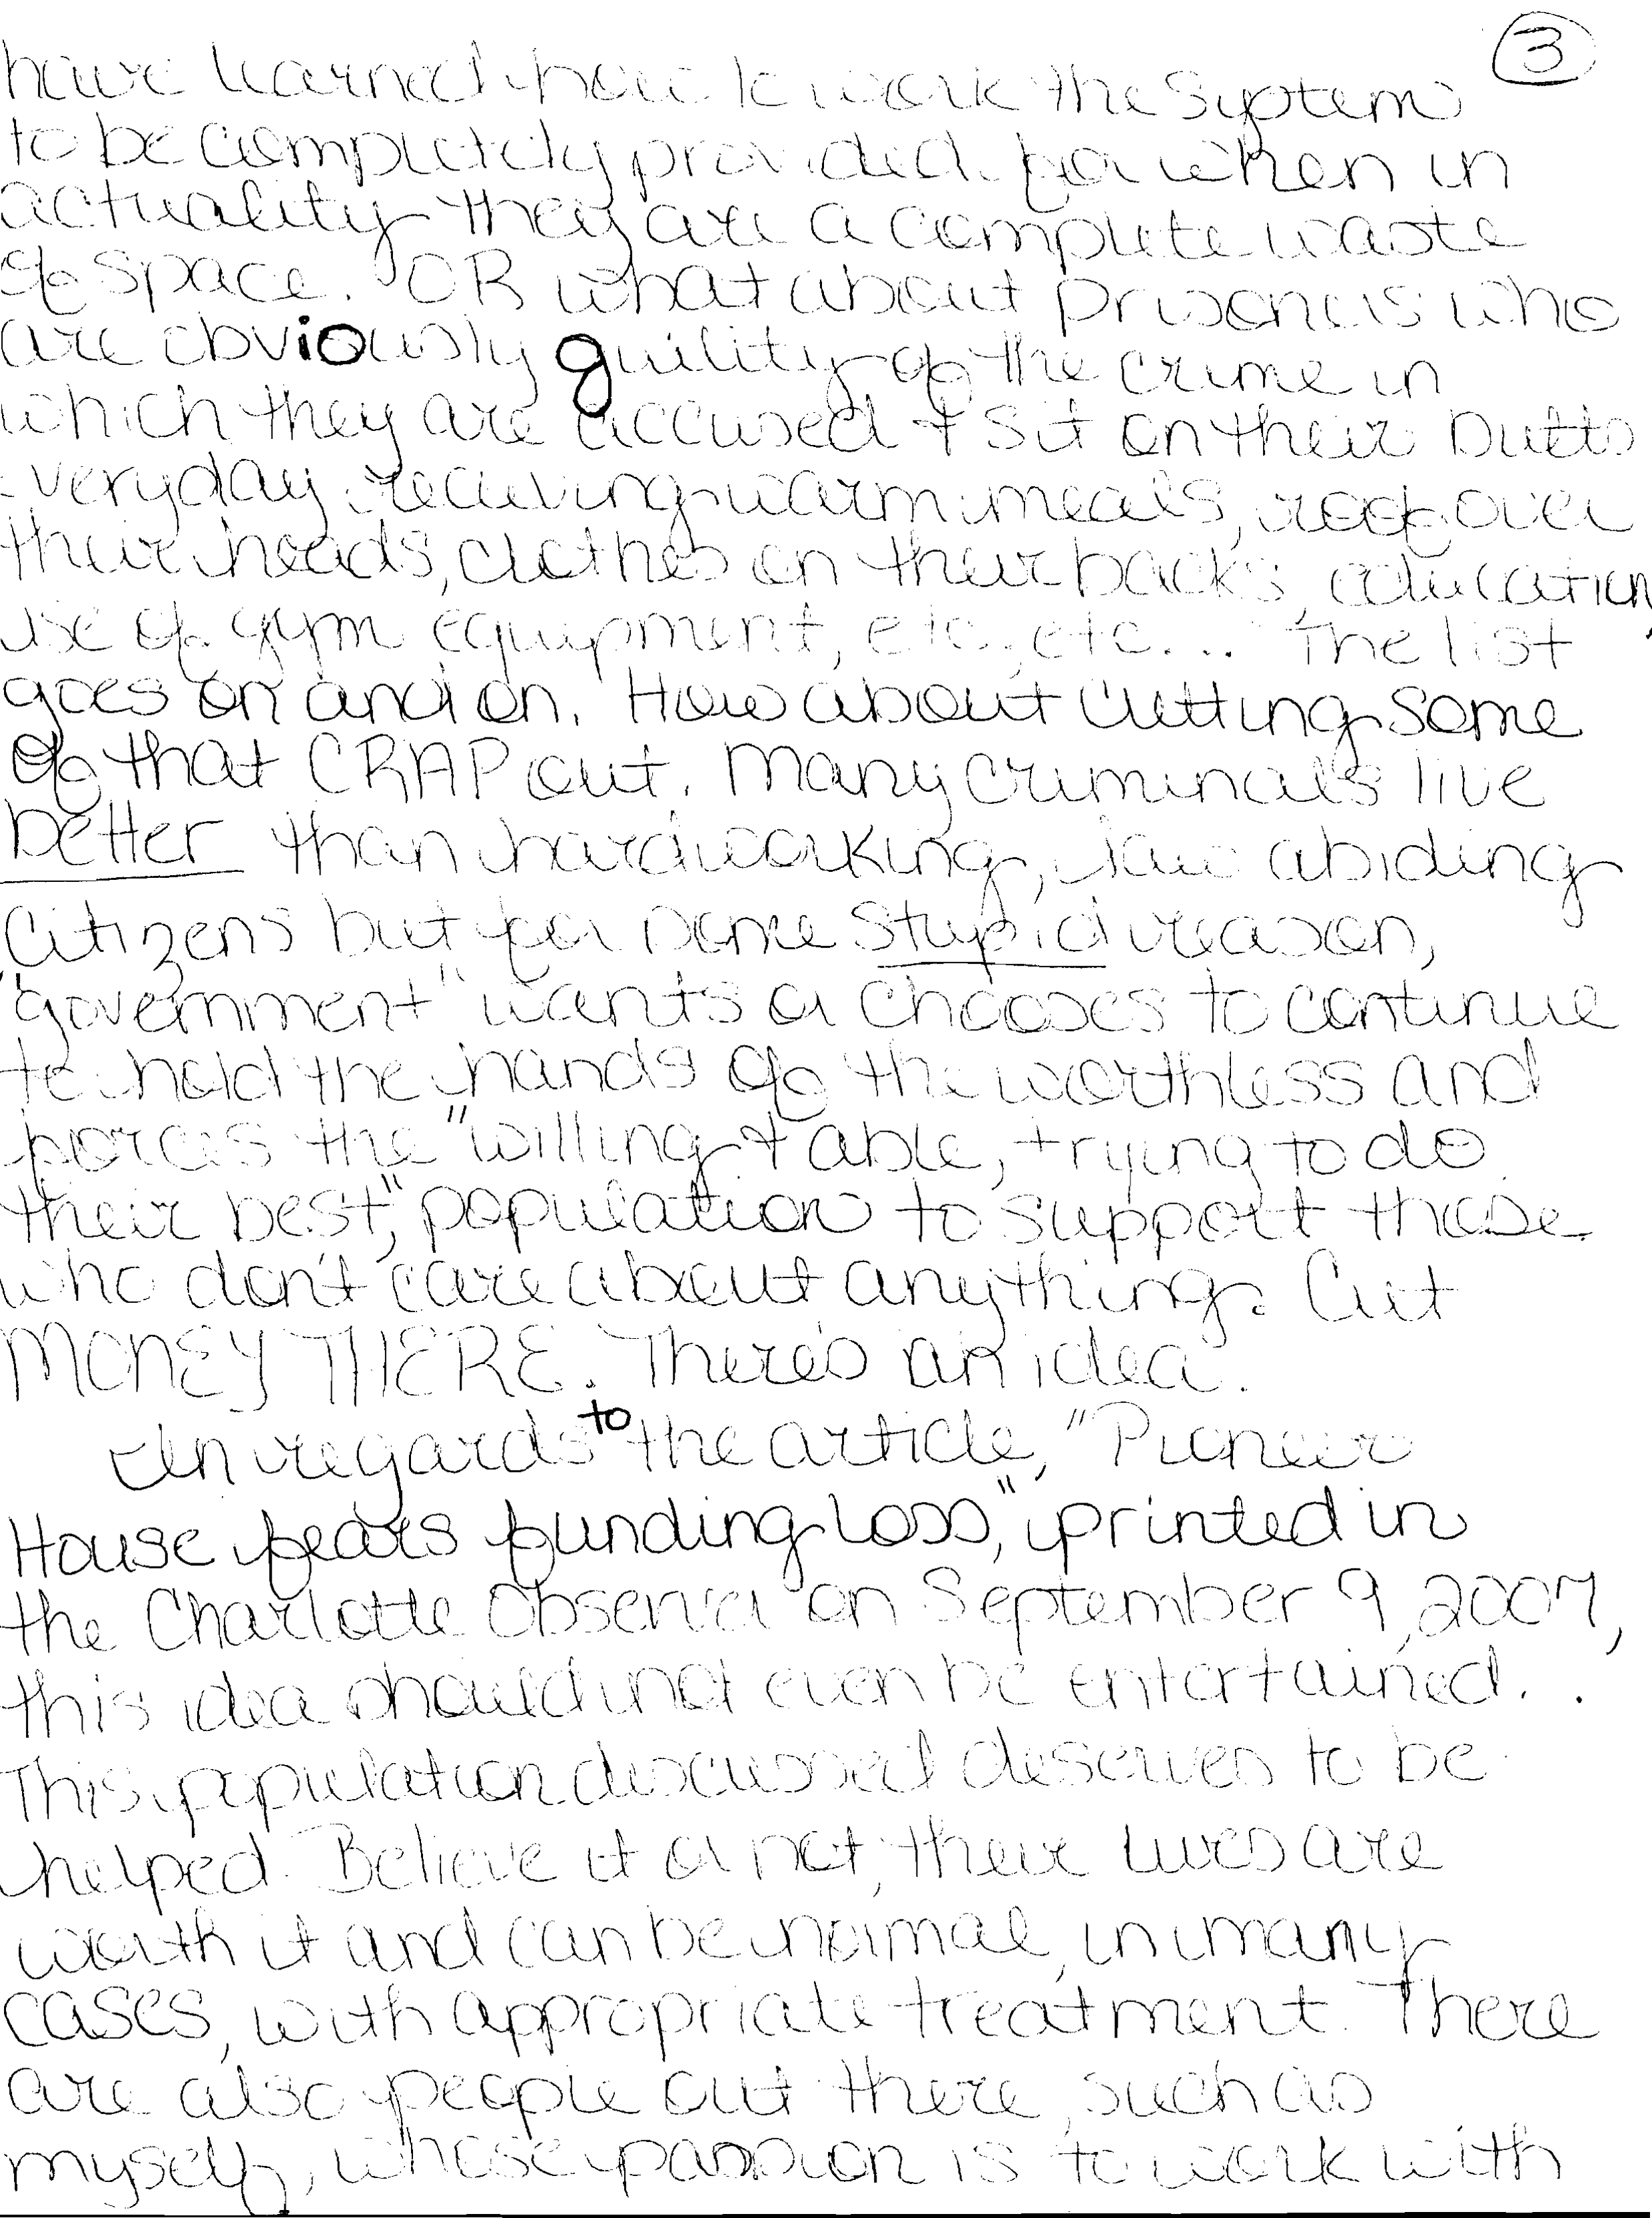 3
have learned how to work the system
to be completely provided for when in
actuality they are a complete waste
of space. OR what about prisoners who
are obviously guility of the crime in
which they are accused + sit on their butts
everyday recieving warm meals, roof over
their heads, clothes on their backs, education,
use of gym equipment, etc, etc... The list
goes on and on. How about cutting some
of that CRAP out. Many criminals live
better than hardworking, law abiding
citizens but for some stupid reason,
"government" wants or chooses to continue
to hold the hands of the worthless and
forces the "willing + able, trying to do
their best," population to support those
who don't care about anything. Cut
MONEY THERE. There's an idea.
In regards to the article, "Pioneer
House fears funding loss," printed in
the Charlotte Observer on September 9, 2007,
this idea should not even be entertained..
This population discussed deserves to be
helped. Believe it or not, their lives are
worth it and can be normal, in many
cases, with appropriate treatment. There
are also people out there, such as
myself, whose passion is to work with